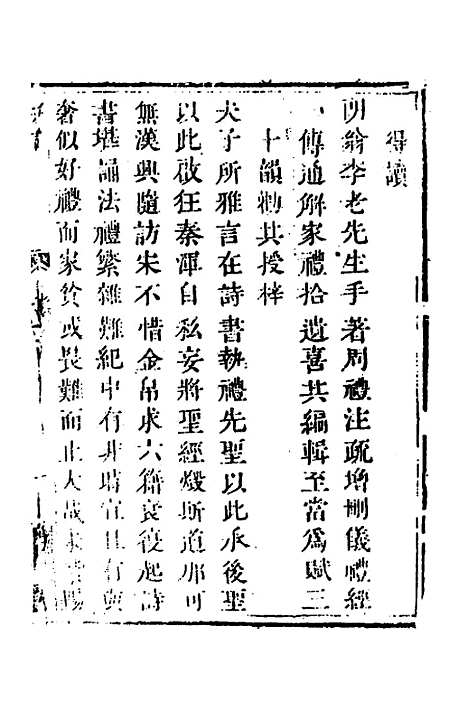 得讀
閉翁李老先生手著周禮注疏增刪儀禮經
傳通解家禮拾遺喜其編輯至當爲賦三
十韻勸其授梓
夫子所雅言在詩書執禮先聖以此承後聖
以此啟狂秦渾自私妄將聖經燬斯道那可
無漢興隨訪求不惜金帛求六籍哀後起詩
書堪誦法禮繁雜難紀中有非時宜且有與
奢似好禮而家貧或長難而止大哉